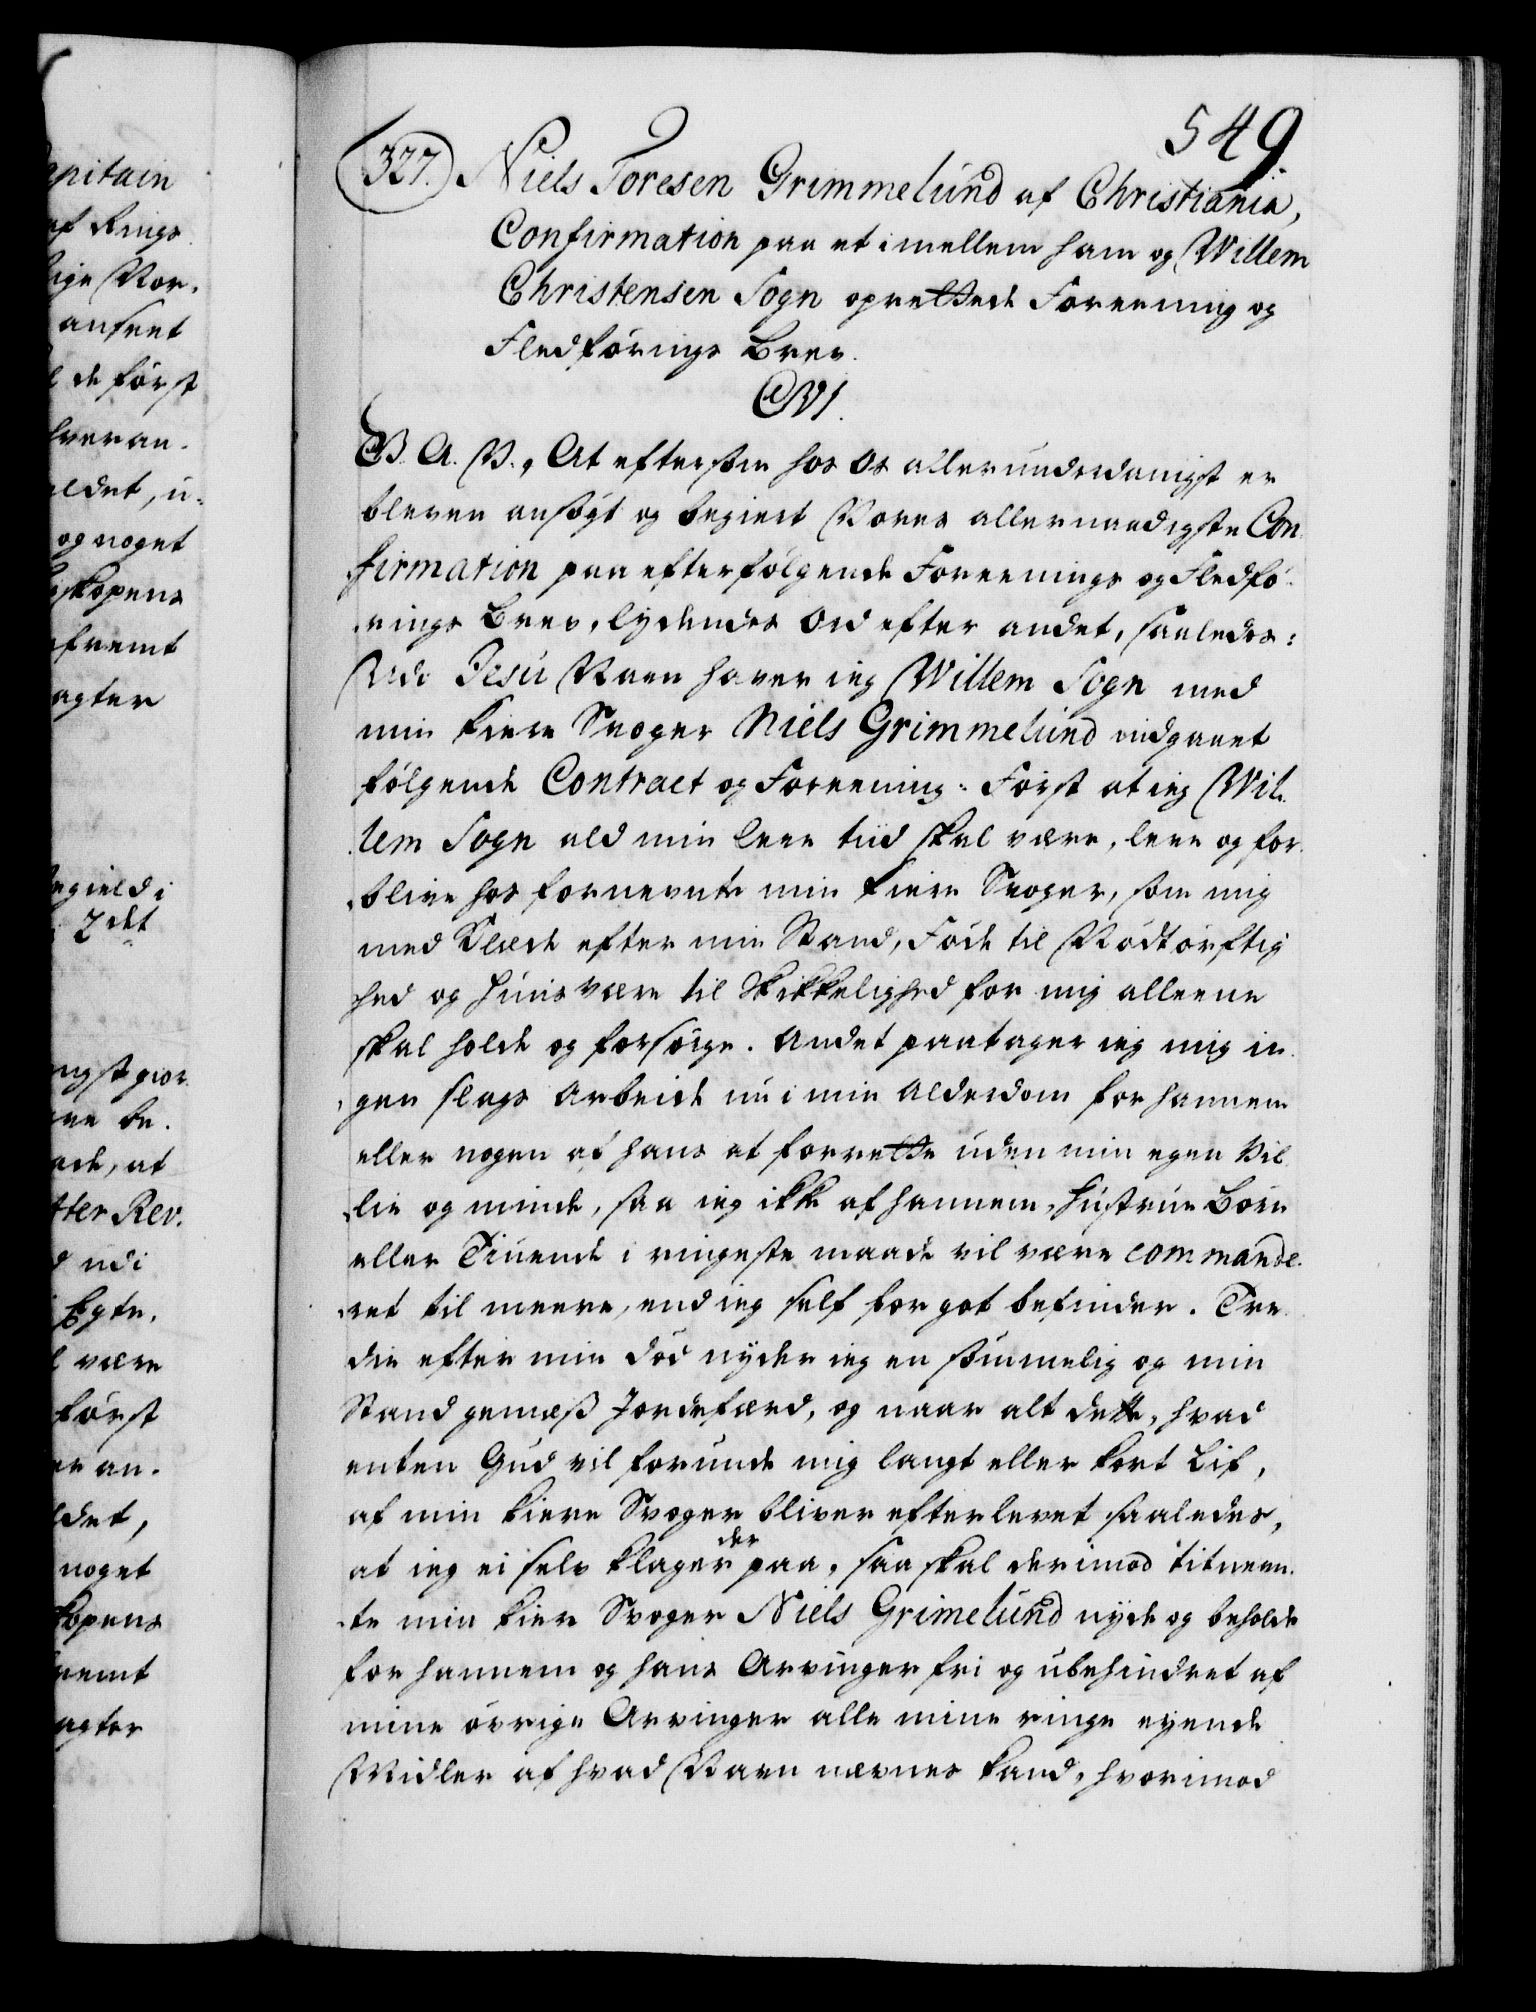 549.
327. Niels Toresen Grimmelund af Christiania,
Confirmation paa et imellem ham og Willem
Christensen Sogn oprettede Foreening og
Fledførings Brev.
CVI.
G. A. V., At eftersom hos Os allerunderdanigst er
bleven ansøgt og begiert Vores allernaadigste Con-
firmation paa efterfølgende Foreenings og Fledfø-
rings Brev, lydendes Ord efter andet, saaledes:
Udi Jesu Navn haver ieg Willem Sogn med
min kiere Svoger Niels Grimmelund indgaaet
følgende Contract og Foreening: Først at ieg Wil-
lem Sogn ald min leve tiid skal være, leve og for-
blive hos fornevnte min kiere Svoger, som mig
med Klæde efter min Stand, Føde til Nødtørftig
hed og Huusvære til Skikkelighed for mig alleene
skal holde og forsørge. Andet paatager ieg mig in-
gen slags Arbeide nu i min Alderdom for hannem
eller nogen af hans at forrette uden min egen Vil-
lie og minde, saa ieg ikke af hannem, Hustrue Børn
eller Tiuende i ringeste maade vil være commande-
ret til meere, end ieg self for got befinder. Tre-
die efter min død nyder ieg en sømmelig og min
Stand gemæß Jordefærd, og naar alt dette, hvad
enten Gud vil forunde mig langt eller kort Lif,
af min kiere Svoger bliver efterlevet saaledes,
at ieg ei selv klager der paa, saa skal derimod titneven-
te min kiere Svoger Niels Grimelund nyde og beholde
for hannem og hans Arvinger fri og ubehindret af
mine øvrige Arvinger alle mine ringe eyende
Midler af hvad Navn nævnes kand, hvorimod